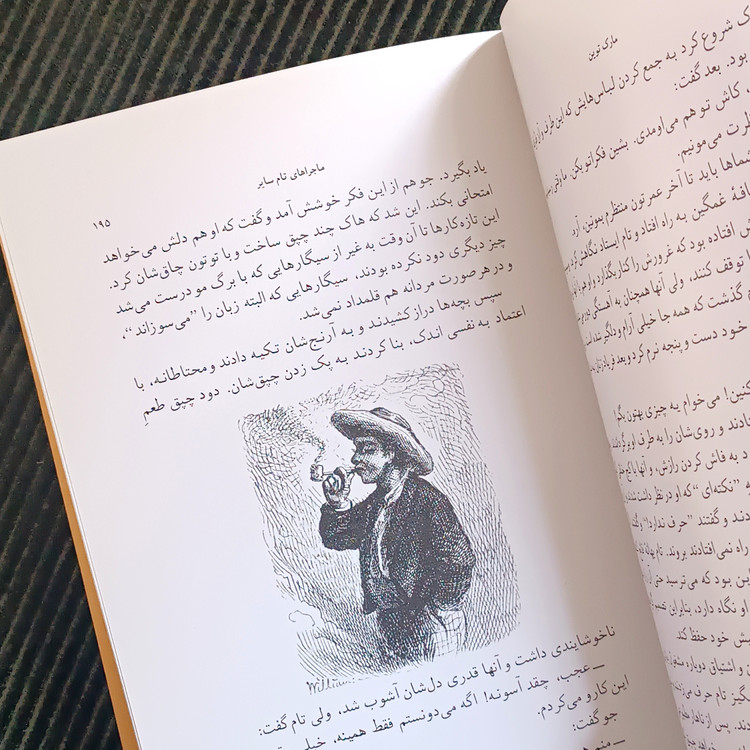 مارک توین
ک شروع کرد به جمع کردن لباس‌هایش که این طرف و آن
بود. بعد گفت:
کاش تو هم می‌اومدی. بشین فکراتو بکن.
ظرت می‌مونیم.
شماها باید تا آخر عمرتون منتظرم بمونین، آره.
افهٔ غمگین به راه افتاد و تام ایستاد نگاهش کرد
ش افتاده بود که غرورش را کنار بگذارد و او هم
توقف کنند، ولی آنها همچنان به آهستگی
گذشت که همه جا خیلی آرام و دلگیر شده
خود دست و پنجه نرم کرد و بعد فریاد زنان
کنین! می‌خوام یه چیزی بهتون بگم!
ادند و روی‌شان را به طرف او برگر
د به فاش کردن رازش، و آنها با اخم
ه ”نکته‌ای“ که او در نظر داشت
دند و گفتند ”حرف ندارد!“ و گفتند
راه نمی‌افتادند بروند. تام بهانهٔ
این بود که می‌ترسید حتی
او نگاه دارد، بنابراین
یش خود حفظ کند.
و اشتیاق دوباره مشغول
گیز تام حرف می‌زدند
دند. پس از ناهار
ماجراهای تام سایر
۱۹۵
یاد بگیرد. جو هم از این فکر خوشش آمد و گفت که او هم دلش می‌خواهد
امتحانی بکند. این شد که هاک چند چپق ساخت و با توتون چاق‌شان کرد.
این تازه‌کارها تا آن وقت به غیر از سیگارهایی که با برگ مو درست می‌شد
چیز دیگری دود نکرده بودند، سیگارهایی که البته زبان را ”می‌سوزاند“،
و در هر صورت مردانه هم قلمداد نمی‌شد.
سپس بچه‌ها دراز کشیدند و به آرنج‌شان تکیه دادند و محتاطانه، با
اعتماد به نفسی اندک، بنا کردند به پک زدن چپق‌شان. دود چپق طعمِ
ناخوشایندی داشت و آنها قدری دل‌شان آشوب شد، ولی تام گفت:
ــ عجب، چقد آسونه! اگه می‌دونستم فقط همینه، خیلی
این کارو می‌کردم.
جو گفت: